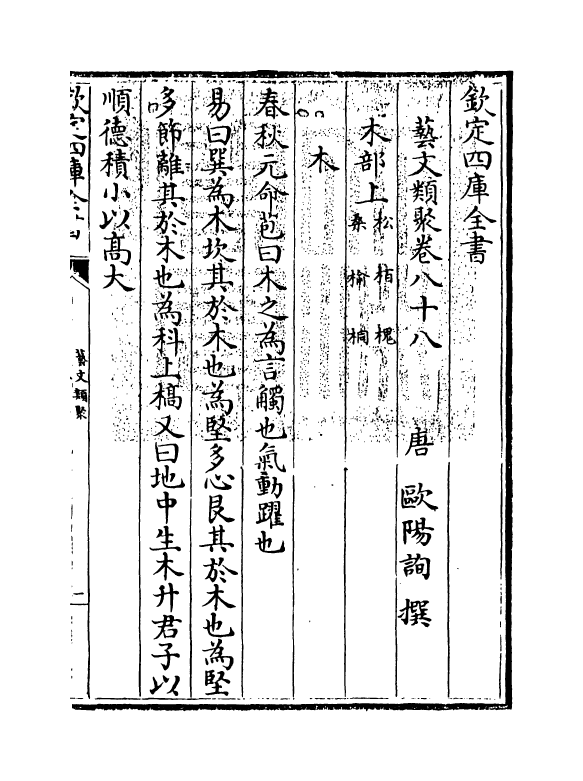 欽定四庫全書
藝文類聚卷八十八 唐 歐陽詢 撰
木部上 松 栢 槐
桑 榆 桐
木
春秋元命苞曰木之為言觸也氣動躍也
易曰巽為木坎其於木也為堅多心艮其於木也為堅
多飾離其於木也為科上槁又曰地中生木升君子以
順德積小以高大
欽定四庫全書
藝文類聚